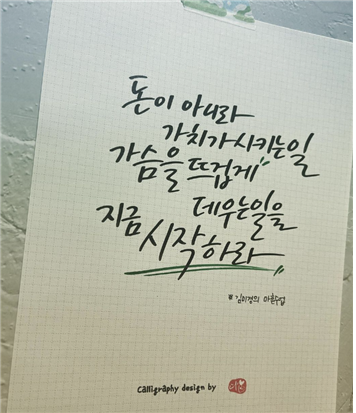 돈이 아니라
가치가 시키는 일
가슴을 뜨겁게
데우는 일을
지금
시작하라
# 김미경의 마흔수업
Calligraphy design by